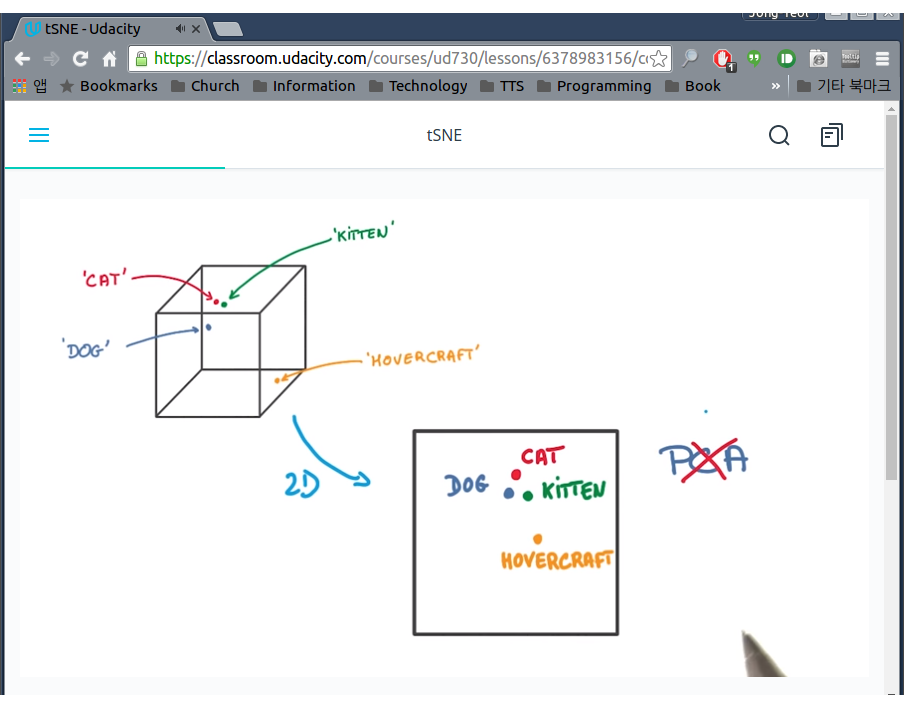 tSNE - Udacity
https://classroom.udacity.com/courses/ud730/lessons/6378983156/c
앱 Bookmarks Church Information Technology TTS Programming Book » 기타 북마크
tSNE
'KITTEN'
'CAT'
'DOG'
'HOVERCRAFT'
2D
CAT
DOG
KITTEN
HOVERCRAFT
PCA
1